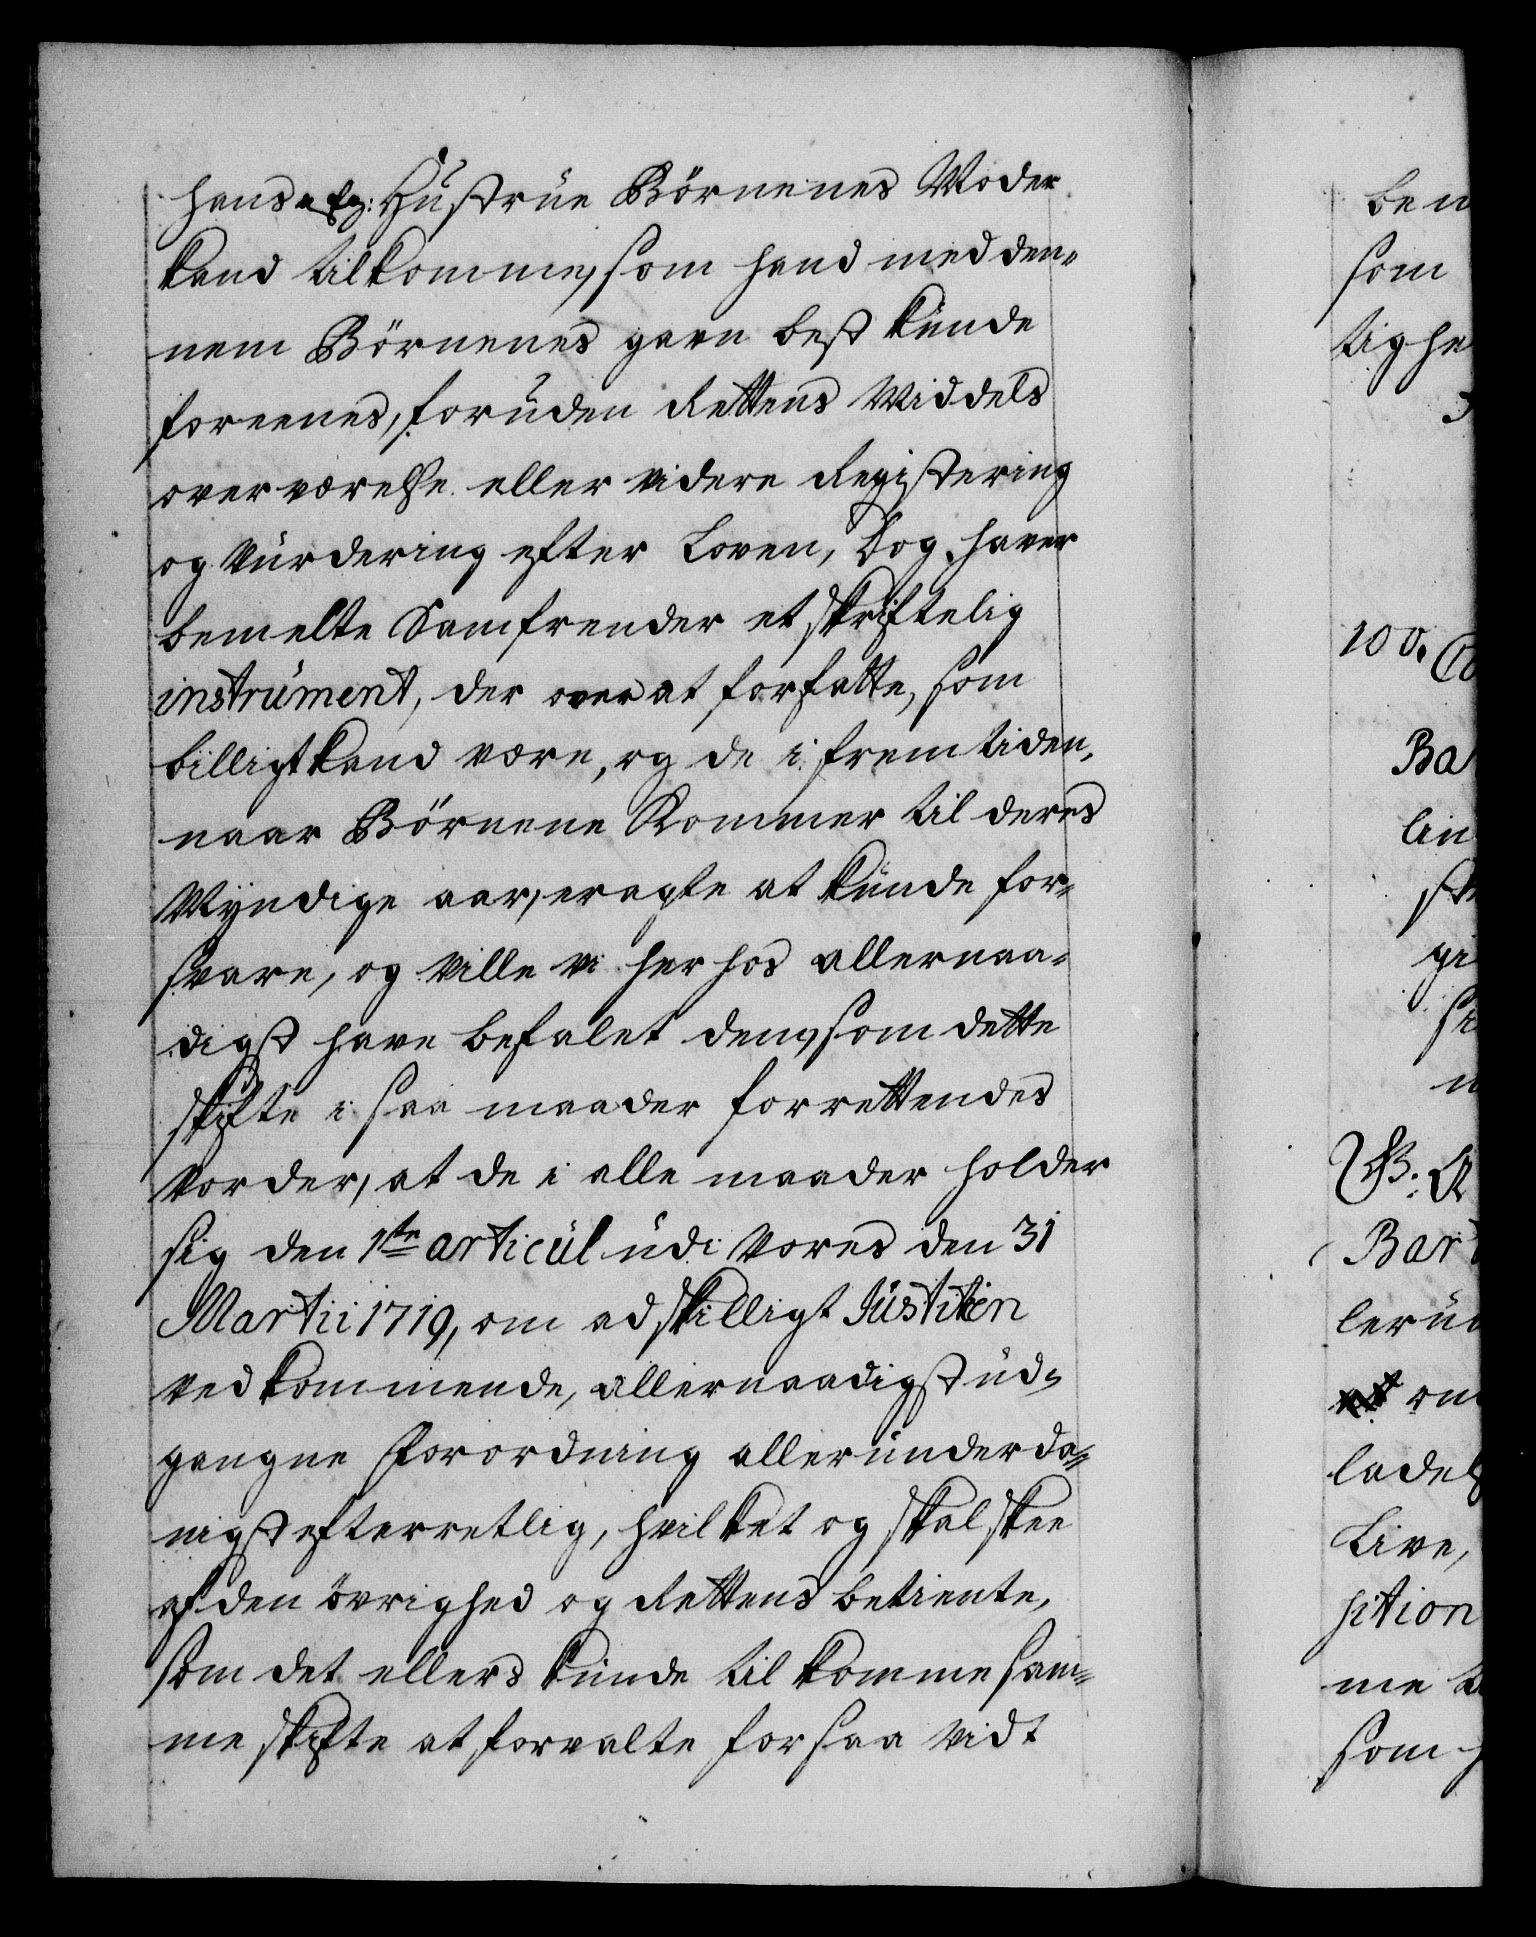 hans Hustrüe Börnenes Moder
kand tilkomme, som hand med den-
nem Börnenes gavn best künde
foreenes, foruden Rettens Middels
overværelse eller videre Registering
og Vurdering efter Loven, Dog haver
bemelte Samfrender et skriftelig
instrument, der over at forfatte, som
billigt kand være, og de i fremtiden,
naar Börnene Kommer til deres
Myndige aar, eragte at künde for-
svare, og ville vi her hos allernaa-
digst have befalet dem, som dette
skifte i saa maader forrettendes
vorder, at de i alle maader holder
sig den 1ste articül udi Vores den 31
Martii 1719, om adskilligt Justitien
vedkommende, allernaadigst ud-
gangne Forordning allerunderda-
nigst efterretlig, hvilket og skal skee
af den övrighed og Rettens betiente,
som det ellers künde tilkomme sam-
me skifte at forvalte forsaa vidt
ben
som
tighe
100.
Ba
lin
gi
B: A
Bar
lerud
om
ladel
Live,
sition
me
som